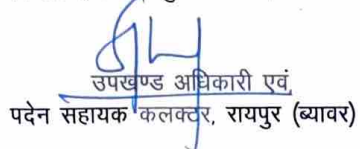 उपखण्ड अधिकारी एवं
पदेन सहायक कलक्टर, रायपुर (ब्यावर)